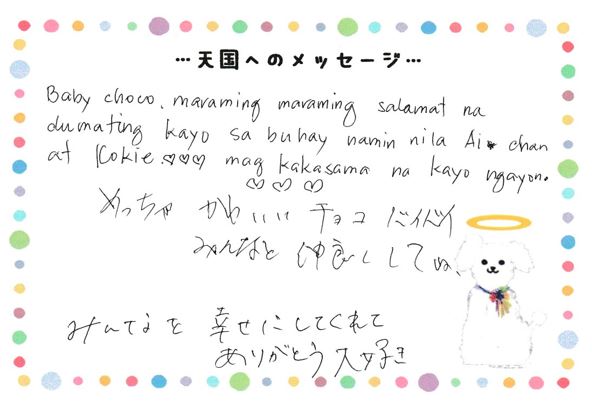 …天国へのメッセージ…
Baby choco, maraming maraming salamat na
dumating kayo sa buhay namin nila Ai chan
at Kokie ♡♡♡ mag kakasama na kayo ngayon.
♡ ♡ ♡
めっちゃ かわいい チョコ
みんなと 仲良くしてね、
みんなを 幸せにしてくれて
ありがとう 大好き